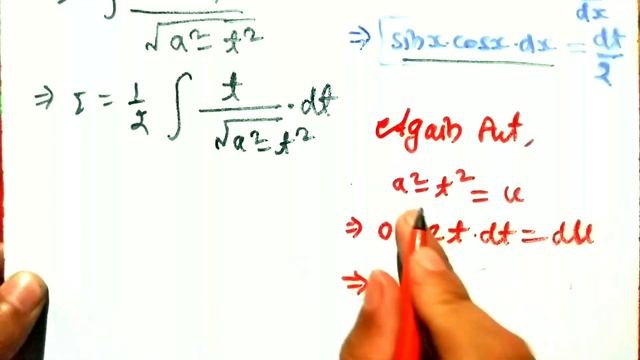 √a²-t²
⇒ I = 1/2 ∫ t/√a²-t² · dt
dx
⇒ sin x · cos x · dx = dt/2
Again Put,
a²-t² = u
⇒ 0 2t · dt = du
⇒